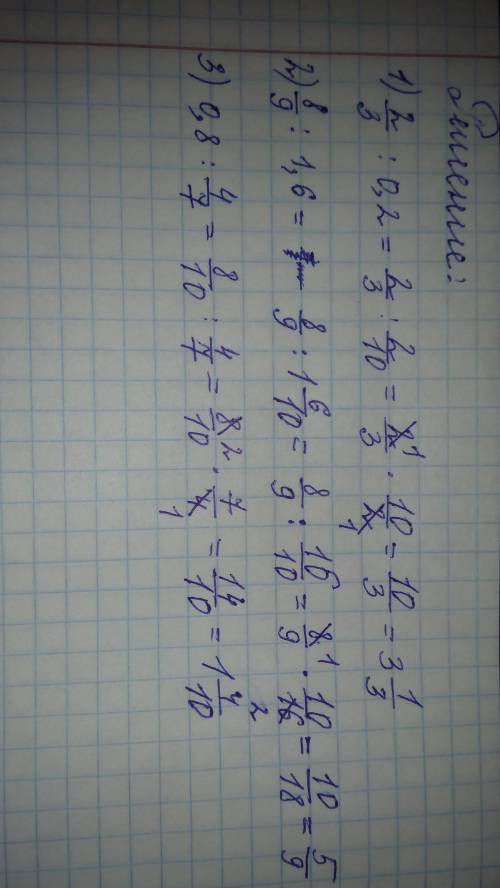 Решение:
1) 2/3 : 0,2 = 2/3 : 2/10 = 2/3 · 10/2 = 10/3 = 3 1/3
2) 8/9 : 1,6 = 8/9 : 1 6/10 = 8/9 : 16/10 = 8/9 · 10/16 = 10/18 = 5/9
3) 0,8 : 4/7 = 8/10 : 4/7 = 8/10 · 7/4 = 14/10 = 1 4/10